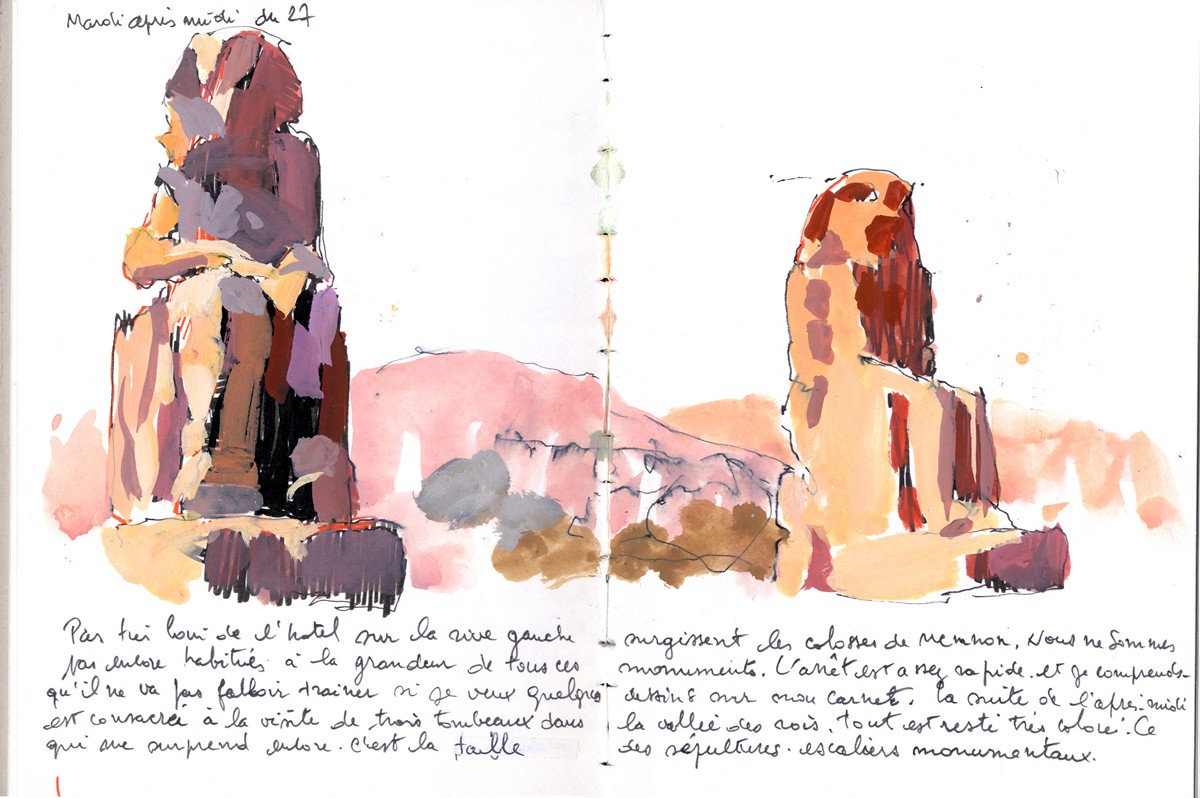 Mardi après midi du 27
Pas très loin de l'hotel sur la rive gauche surgissent les colosses de Memnon. Nous ne sommes
pas encore habitués à la grandeur de tous ces monuments. L'arrêt est assez rapide. et je comprends
qu'il ne va pas falloir trainer si je veux quelques dessins sur mon carnet. la suite de l'après-midi
est consacrée à la visite de trois tombeaux dans la vallée des rois. tout est resté très coloré. Ce
qui me surprend encore. c'est la taille des sépultures. escaliers monumentaux.